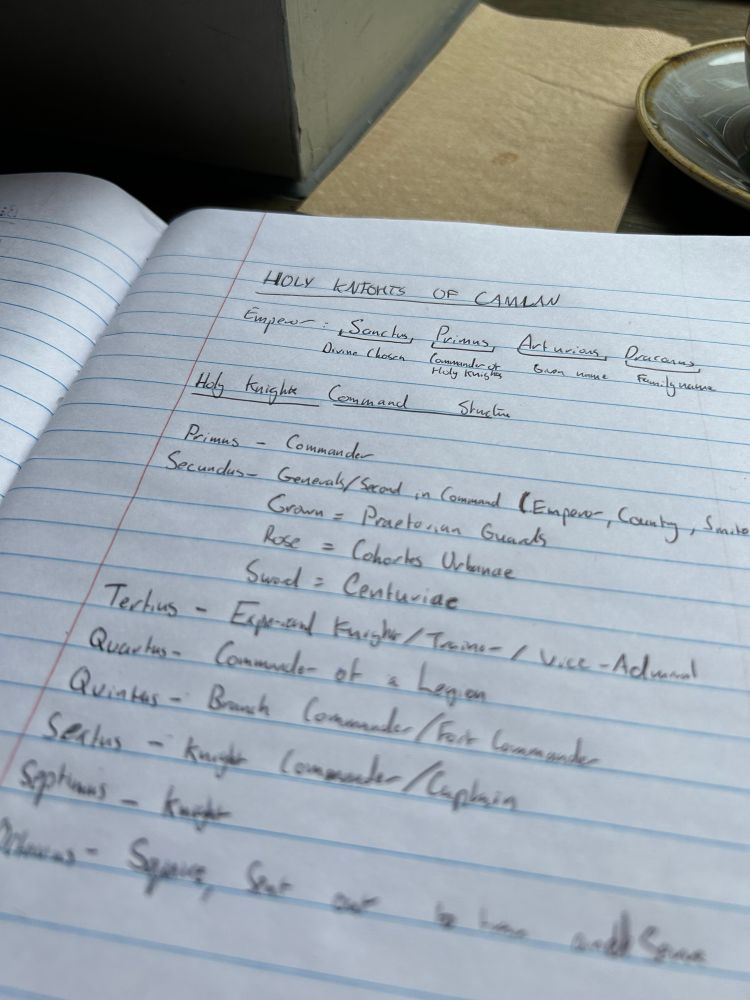 HOLY KNIGHTS OF CAMLAN
Emperor: Sanctus, Primus, Arturious, Draconus,
Divine Chosen Commander of Holy Knights Given name Family name
Holy Knights Command Structure
Primus - Commander
Secundus - Generals/Second in Command (Emperor, County,
Crown = Praetorian Guards
Rose = Cohortes Urbanae
Sword = Centuriae
Tertius - Knight/Trainer/Vice-Admiral
Quartus - Commander of a Legion
Quintus - Branch Commander/Fort Commander
Sextus - Knight Commander/Captain
Septimus - Knight
Squire, Sent out to and